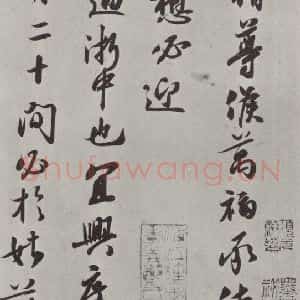 尊候萬福承
想必迎
過浙中也宜興
二十間只於姑蘇
Shufawang.CN